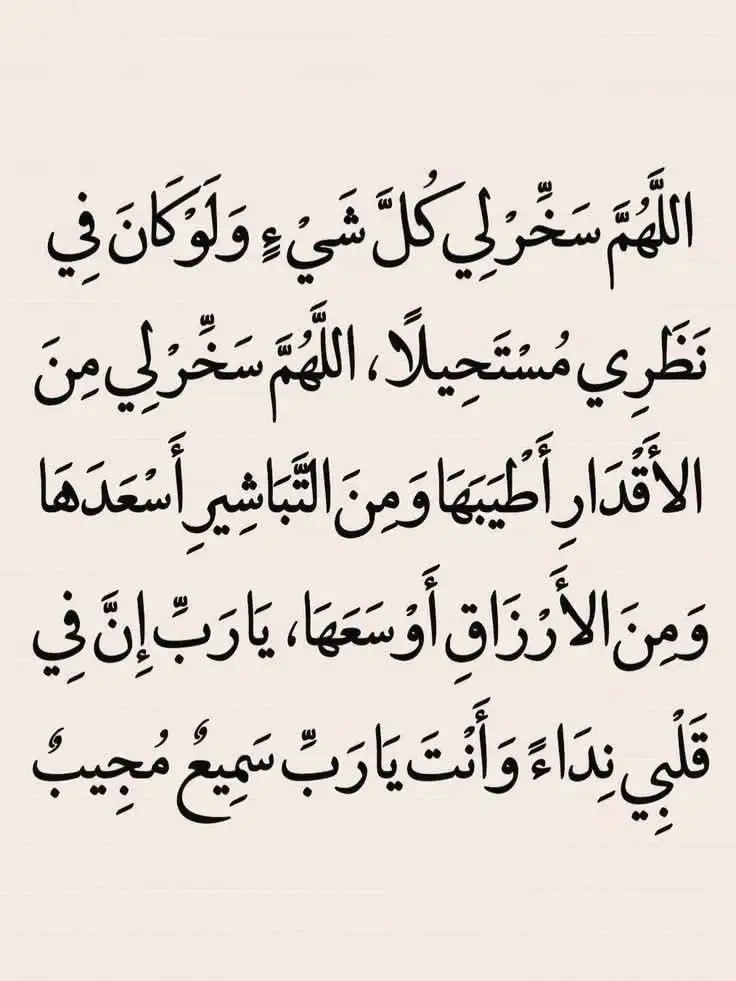 اللَّهُمَّ سَخِّرْ لِي كُلَّ شَيْءٍ وَلَوْ كَانَ فِي
نَظَرِي مُسْتَحِيلًا، اللَّهُمَّ سَخِّرْ لِي مِنَ
الأَقْدَارِ أَطْيَبَهَا وَمِنَ التَّبَاشِيرِ أَسْعَدَهَا
وَمِنَ الأَرْزَاقِ أَوْسَعَهَا، يَا رَبِّ إِنَّ فِي
قَلْبِي نِدَاءً وَأَنْتَ يَا رَبِّ سَمِيعٌ مُجِيبٌ